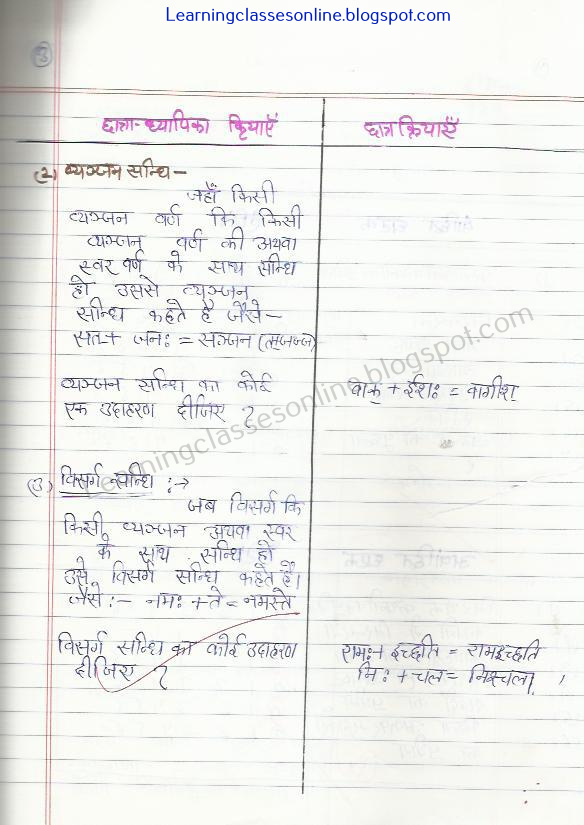 Learningclassesonline.blogspot.com
3
छात्रा-ध्यापिका क्रियाएँ
छात्र क्रियाएँ
(2) व्यञ्जन सन्धि -
जहाँ किसी
व्यञ्जन वर्ण कि किसी
व्यञ्जन वर्ण की अथवा
स्वर वर्ण के साथ सन्धि
हो उससे व्यञ्जन
सन्धि कहते है जैसे -
सत् + जनः = सज्जन (त्+ज=ज्ज)
व्यञ्जन सन्धि का कोई
एक उदाहरण दीजिए ?
वाक् + ईशः = वागीश
(3) विसर्ग सन्धि :->
जब विसर्ग कि
किसी व्यञ्जन अथवा स्वर
के साथ सन्धि हो
उसे विसर्ग सन्धि कहते हैं।
जैसे :- नमः + ते = नमस्ते
विसर्ग सन्धि का कोई उदाहरण
दीजिए ?
रामः + इच्छति = रामइच्छति
निः + चल = निश्चल।
Learningclassesonline.blogspot.com